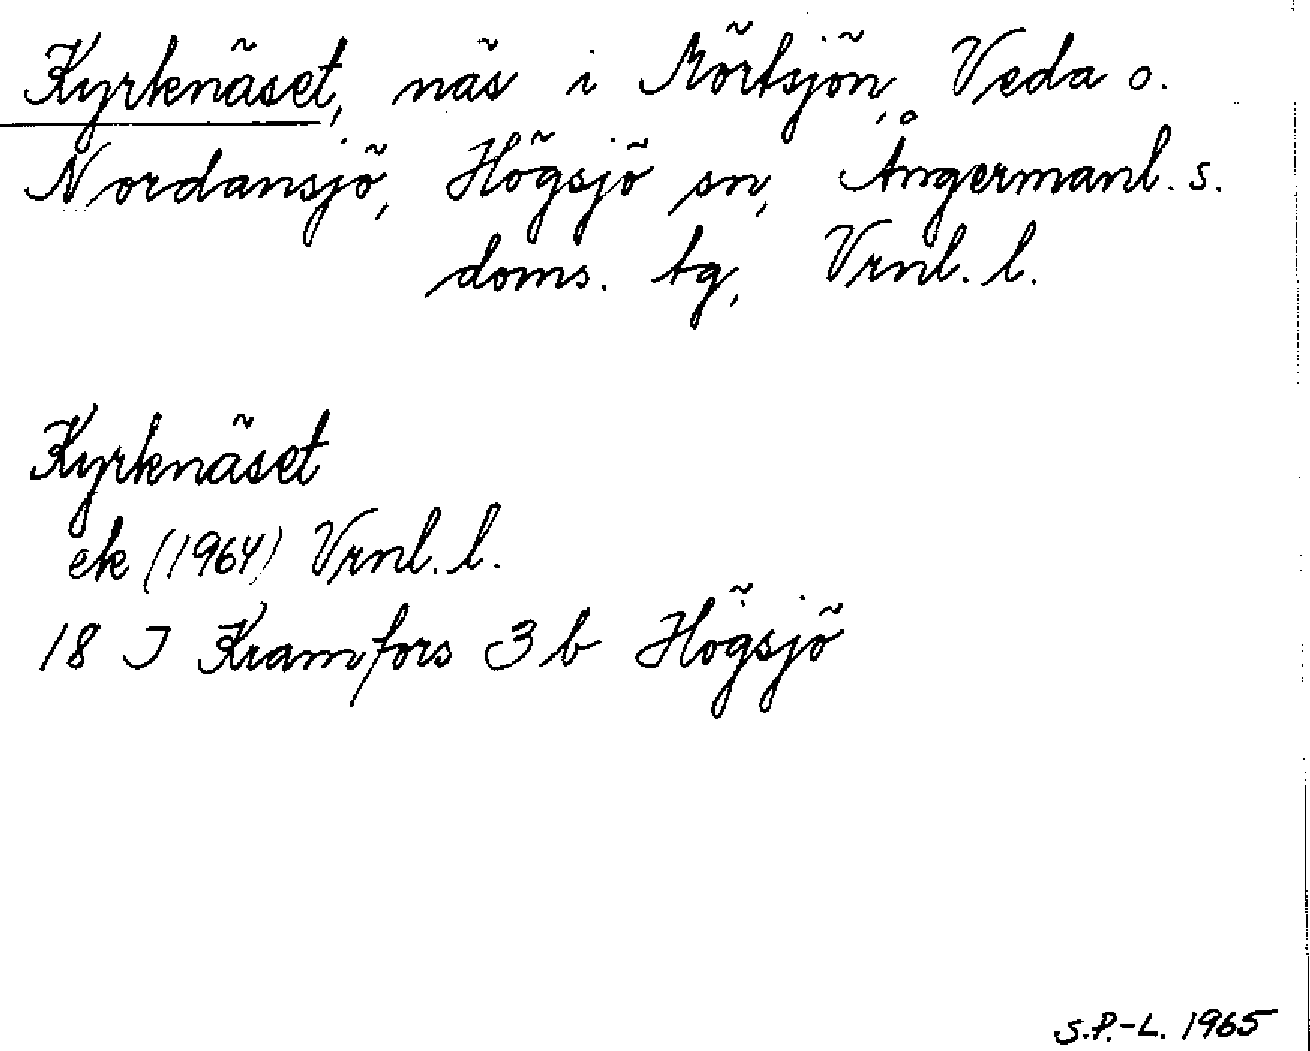 Kyrknäset, näs i Mörtsjön, Veda o.
Nordansjö, Högsjö sn, Ångermanl. s.
doms. tg, Vrnl. l.
Kyrknäset
ek (1964) Vrnl. l.
18 J Kramfors 3 b Högsjö
S.P.-L. 1965